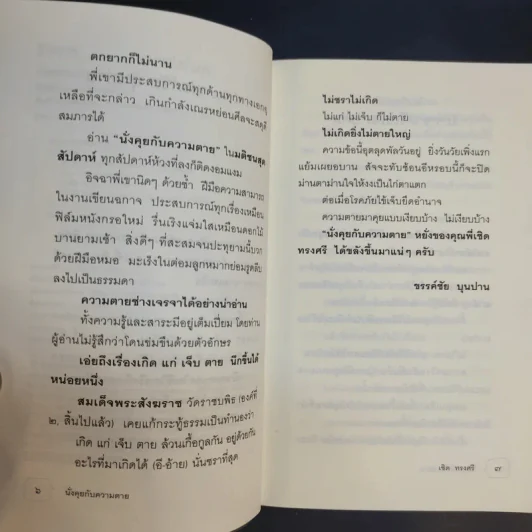 ตกยากก็ไม่นาน
พี่เขามีประสบการณ์ทุกด้านทุกทางเอกอุ
เหลือที่จะกล่าว เกินกำลังเณรหย่อนศีลจะสดุดี
สมภารได้
อ่าน “นั่งคุยกับความตาย” ในมติชนสุด
สัปดาห์ ทุกสัปดาห์ห้วงที่ลงก็ติดงอมแงม
อิจฉาพี่เขานิดๆ ด้วยซ้ำ ฝีมือความสามารถ
ในงานเขียนฉกาจ ประสบการณ์ทุกเรื่องเหมือน
ฟิล์มหนังกรอใหม่ รื่นเริงแจ่มใสเหมือนดอกไม้
บานยามเช้า สิ่งดีๆ ที่สะสมจนปะทุยามนี้บวก
ด้วยฝีมือหมอ มะเร็งในต่อมลูกหมากย่อมรูดลับ
ลงไปเป็นธรรมดา
ความตายช่างเจรจาได้อย่างน่าอ่าน
ทั้งความรู้และสาระมีอยู่เต็มเปี่ยม โดยท่าน
ผู้อ่านไม่รู้สึกว่าโดนข่มขืนด้วยตัวอักษร
เอ่ยถึงเรื่องเกิด แก่ เจ็บ ตาย นึกขึ้นได้
หน่อยหนึ่ง
สมเด็จพระสังฆราช วัดราชบพิธ (องค์ที่
๒, สิ้นไปแล้ว) เคยแก้กระทู้ธรรมเป็นทำนองว่า
เกิด แก่ เจ็บ ตาย ล้วนเกื้อกูลกัน อยู่ด้วยกัน
อะไรที่มาเกิดได้ (อี-อ้าย) นั่นชราที่สุด
๖ นั่งคุยกับความตาย
ไม่ชราไม่เกิด
ไม่แก่ ไม่เจ็บ ก็ไม่ตาย
ไม่เกิดยิ่งไม่ตายใหญ่
ความข้อนี้อุตลุดพัลวันอยู่ ยิ่งวันวัยเพิ่งแรก
แย้มเผยอบาน สัจจะทับซ้อนอีหรอบนี้ก็จะปิด
ม่านตาม่านใจให้งงเป็นไก่ตาแตก
ต่อเมื่อโรคภัยใช้เจ็บยึดอำนาจ
ความตายมาคุยแบบเงียบบ้าง ไม่เงียบบ้าง
“นั่งคุยกับความตาย” หยั่งของคุณพี่เชิด
ทรงศรี ได้ขลังขึ้นมาแน่ๆ ครับ
ขรรค์ชัย บุนปาน
เชิด ทรงศรี ๗